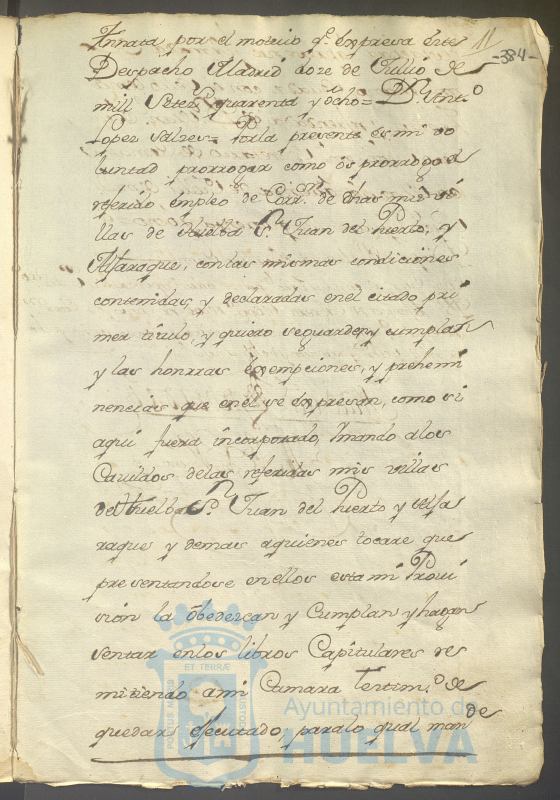 11
384
Annata por el motivo q.e expresa este
Despacho Madrid doze de Jullio de
mill setez.s quarenta y ocho = D.n Ant.o
Lopez Salzes = Porla presente es mi vo
luntad prorrogar como os prorrogo el
referido empleo de Corr.or de dhas mis vi
llas de Huelba S.n Juan del Puerto, y
Aljaraque, con las mismas condiciones
contenidas y declaradas enel citado pri
mer titulo, y quiero se guarden y cumplan
y las honrras exempciones, y prehemi
nencias que enél se expresan, como si
aqui fuera incorporado, y mando alos
Cavildos delas referidas mis villas
de Huelba S.n Juan del Puerto y Alja
raque y demas aquienes tocare que
presentandose en ellos esta mi Provi
sión la óbedezcan y Cumplan y hagan
sentar enlos libros Capitulares re
mitiendo ami Camara testim.o de
quedar éfecutado, paralo qual man
de
PORTUS MARIS
ET TERRÆ
CUSTODIA
Ayuntamiento de
HUELVA